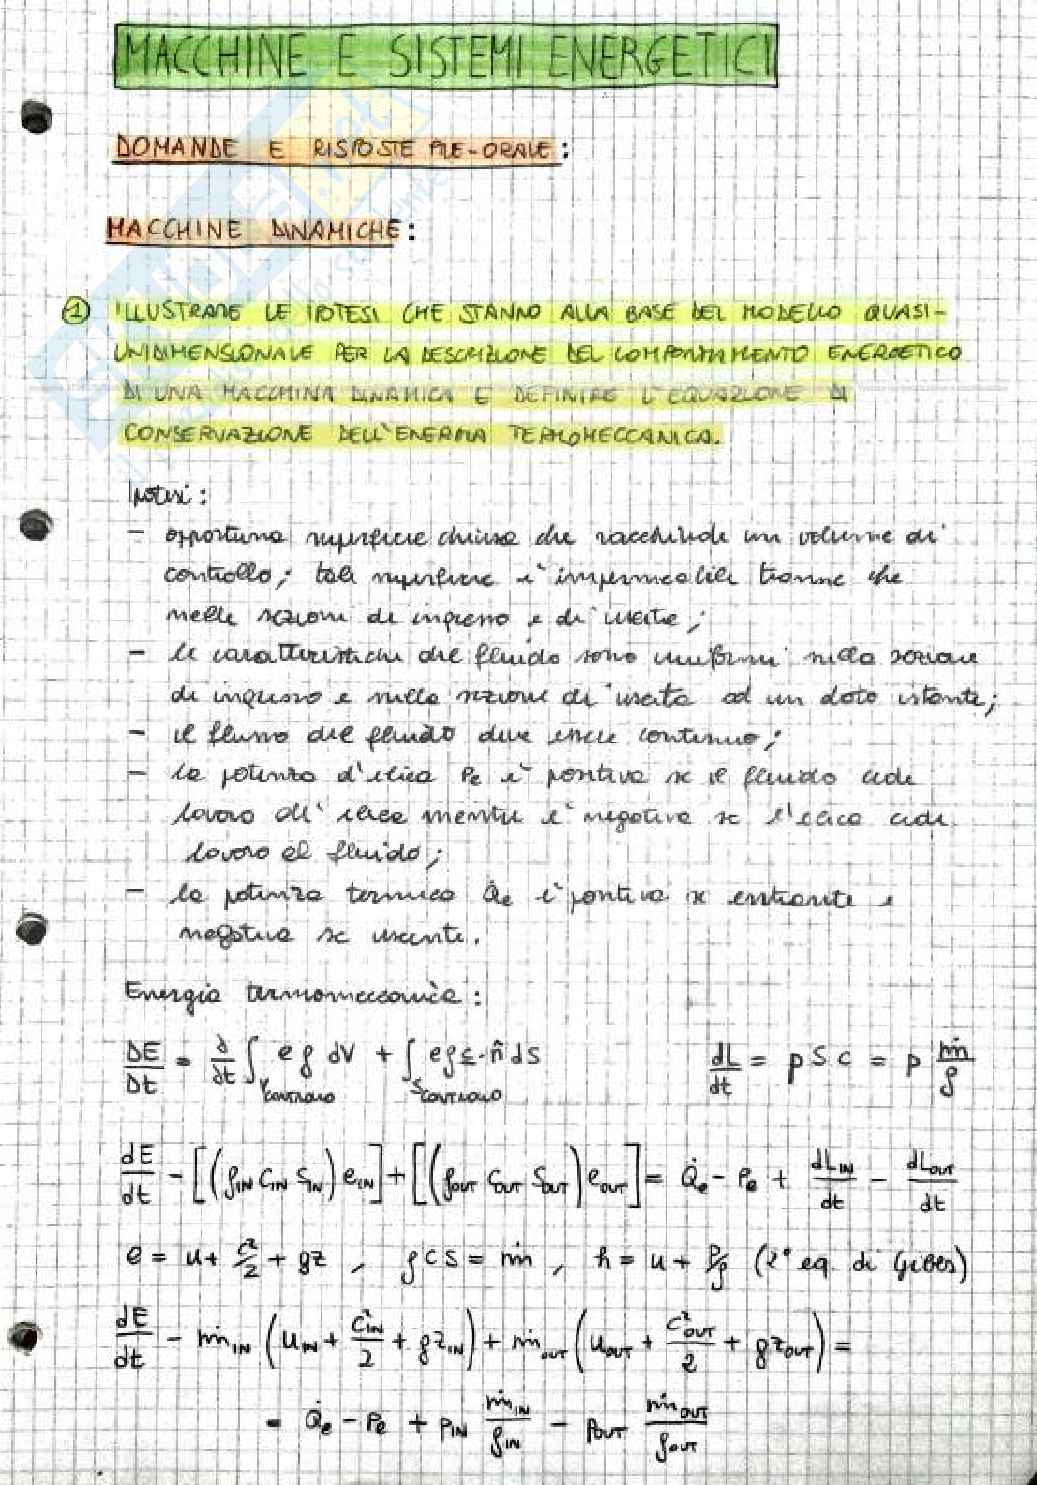 MACCHINE E SISTEMI ENERGETICI
DOMANDE E RISPOSTE PRE-ORALE:
MACCHINE DINAMICHE:
① ILLUSTRARE LE IPOTESI CHE STANNO ALLA BASE DEL MODELLO QUASI-
UNIDIMENSIONALE PER LA DESCRIZIONE DEL COMPORTAMENTO ENERGETICO
DI UNA MACCHINA DINAMICA E DEFINIRE L'EQUAZIONE DI
CONSERVAZIONE DELL'ENERGIA TERMOMECCANICA.
Ipotesi:
- opportuna superficie chiusa che racchiude un volume di
controllo; tale superficie è impermeabile tranne che
nelle sezioni di ingresso e di uscita;
- le caratteristiche del fluido sono uniformi nella sezione
di ingresso e nella sezione di uscita ad un dato istante;
- il flusso del fluido deve essere continuo;
- la potenza d'elica Pe è positiva se il fluido cede
lavoro all'elica mentre è negativa se l'elica cede
lavoro al fluido;
- la potenza termica Q̇e è positiva se entrante e
negativa se uscente.
Energia termomeccanica:
DE/Dt = ∂/∂t ∫_VCONTROLLO eρ dV + ∫_SCONTROLLO eρc·n̂ dS    dL/dt = pSc = p ṁ/ρ
dE/dt - [(ρIN cIN SIN) eIN] + [(ρOUT cOUT SOUT) eOUT] = Q̇e - Pe + dLIN/dt - dLOUT/dt
e = u + c²/2 + gz , ρcS = ṁ , h = u + p/ρ (2° eq. di Gibbs)
dE/dt - ṁIN (uIN + c²IN/2 + gzIN) + ṁOUT (uOUT + c²OUT/2 + gzOUT) =
= Q̇e - Pe + pIN ṁIN/ρIN - pOUT ṁOUT/ρOUT